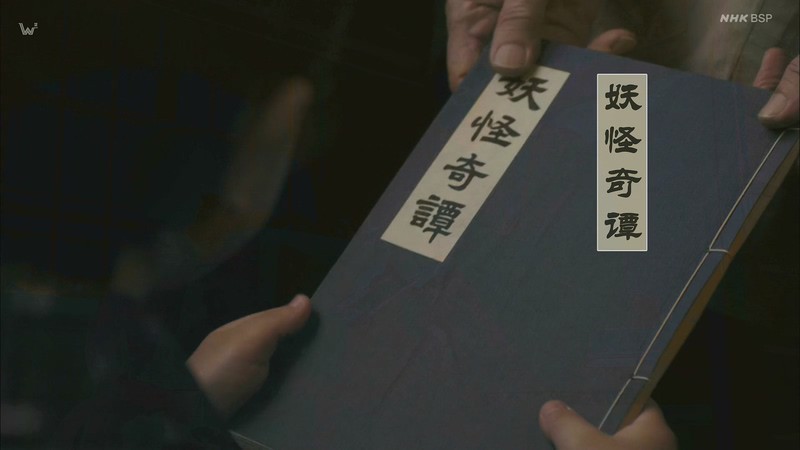 NHK BSP
妖怪奇譚
妖怪奇谭